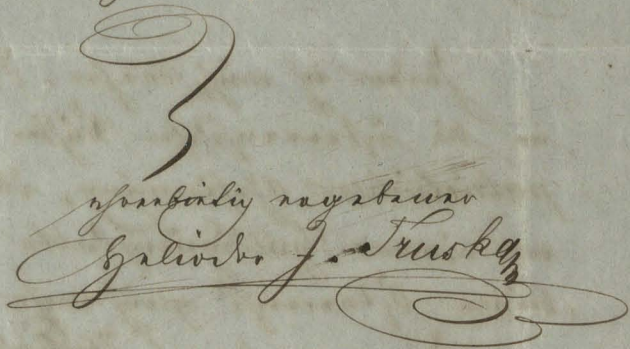 ehrerbietig ergebener
Heliodor J. Truska